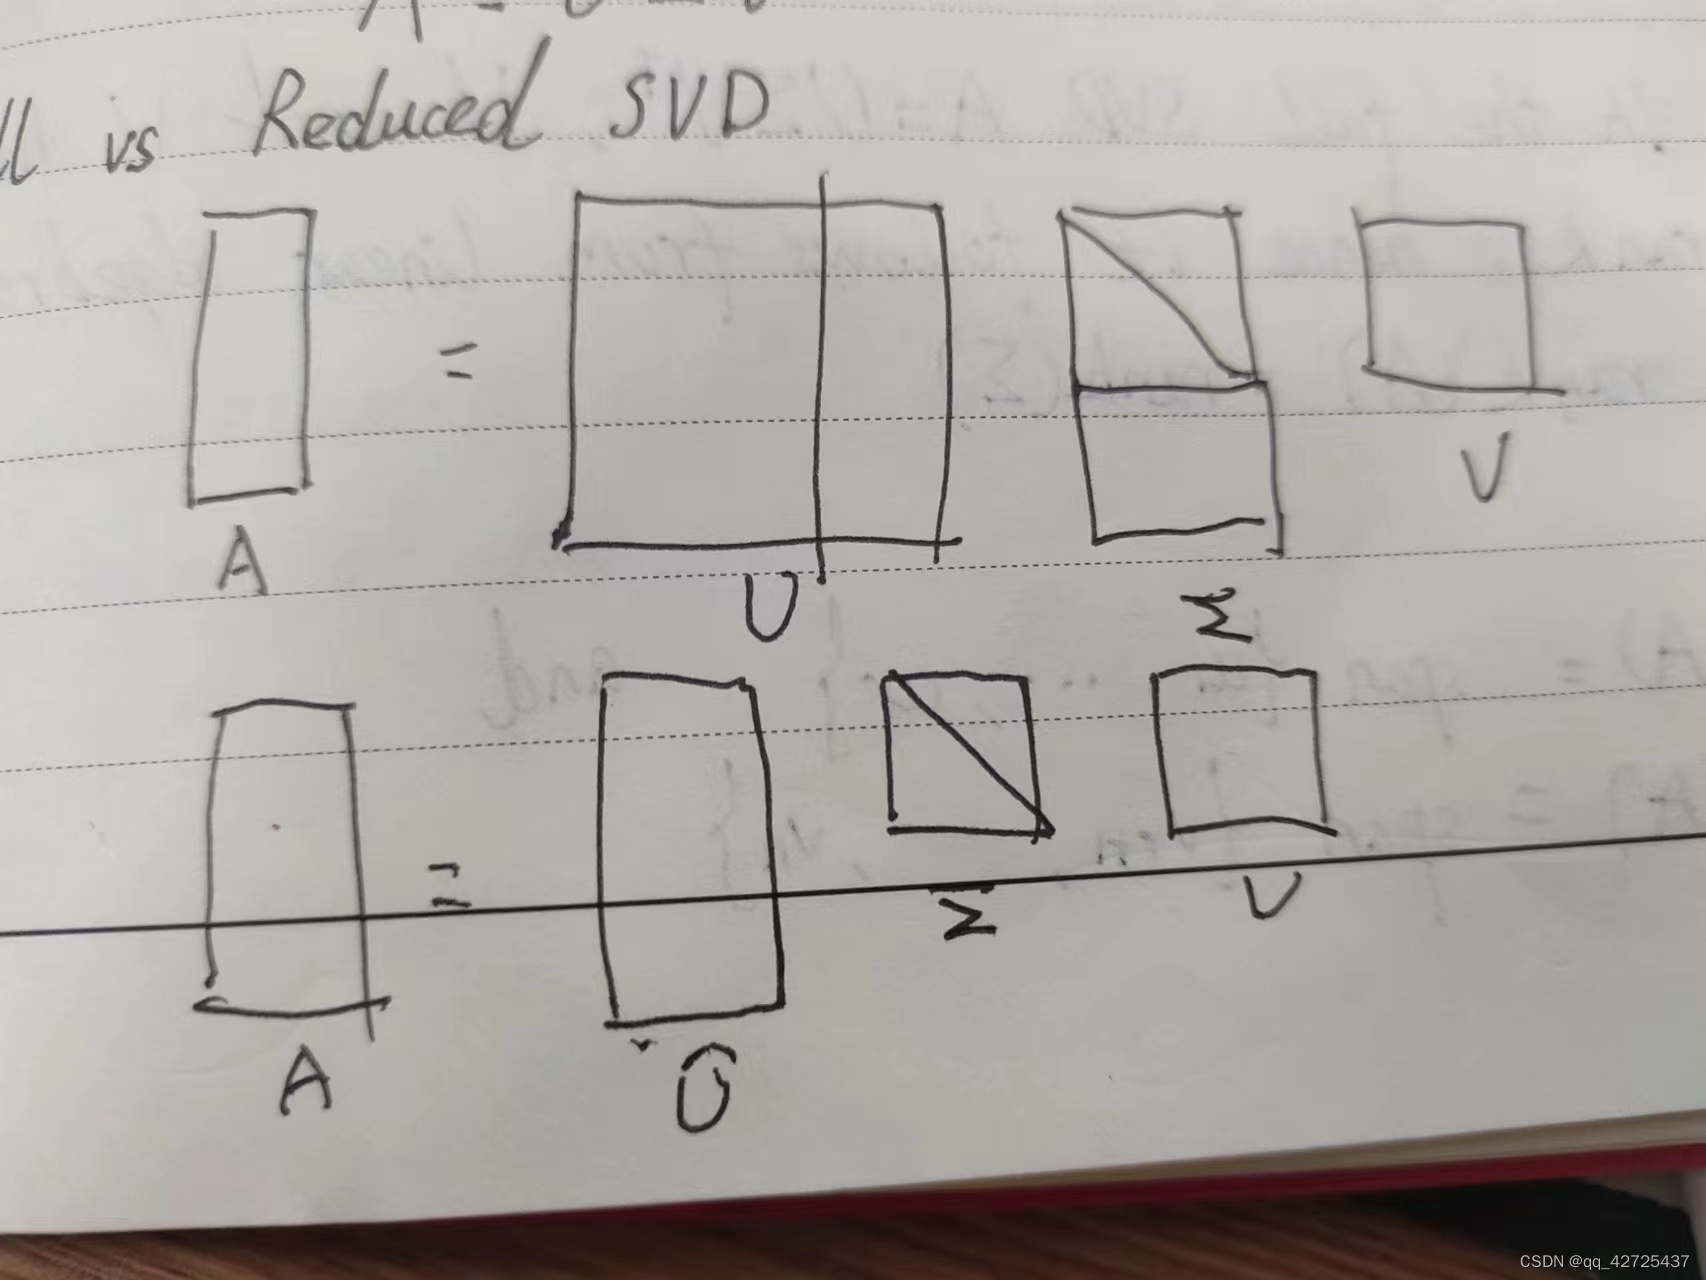 vs Reduced SVD
=
A
U
Σ
V
=
Σ
V
A
Û
CSDN @qq_42725437